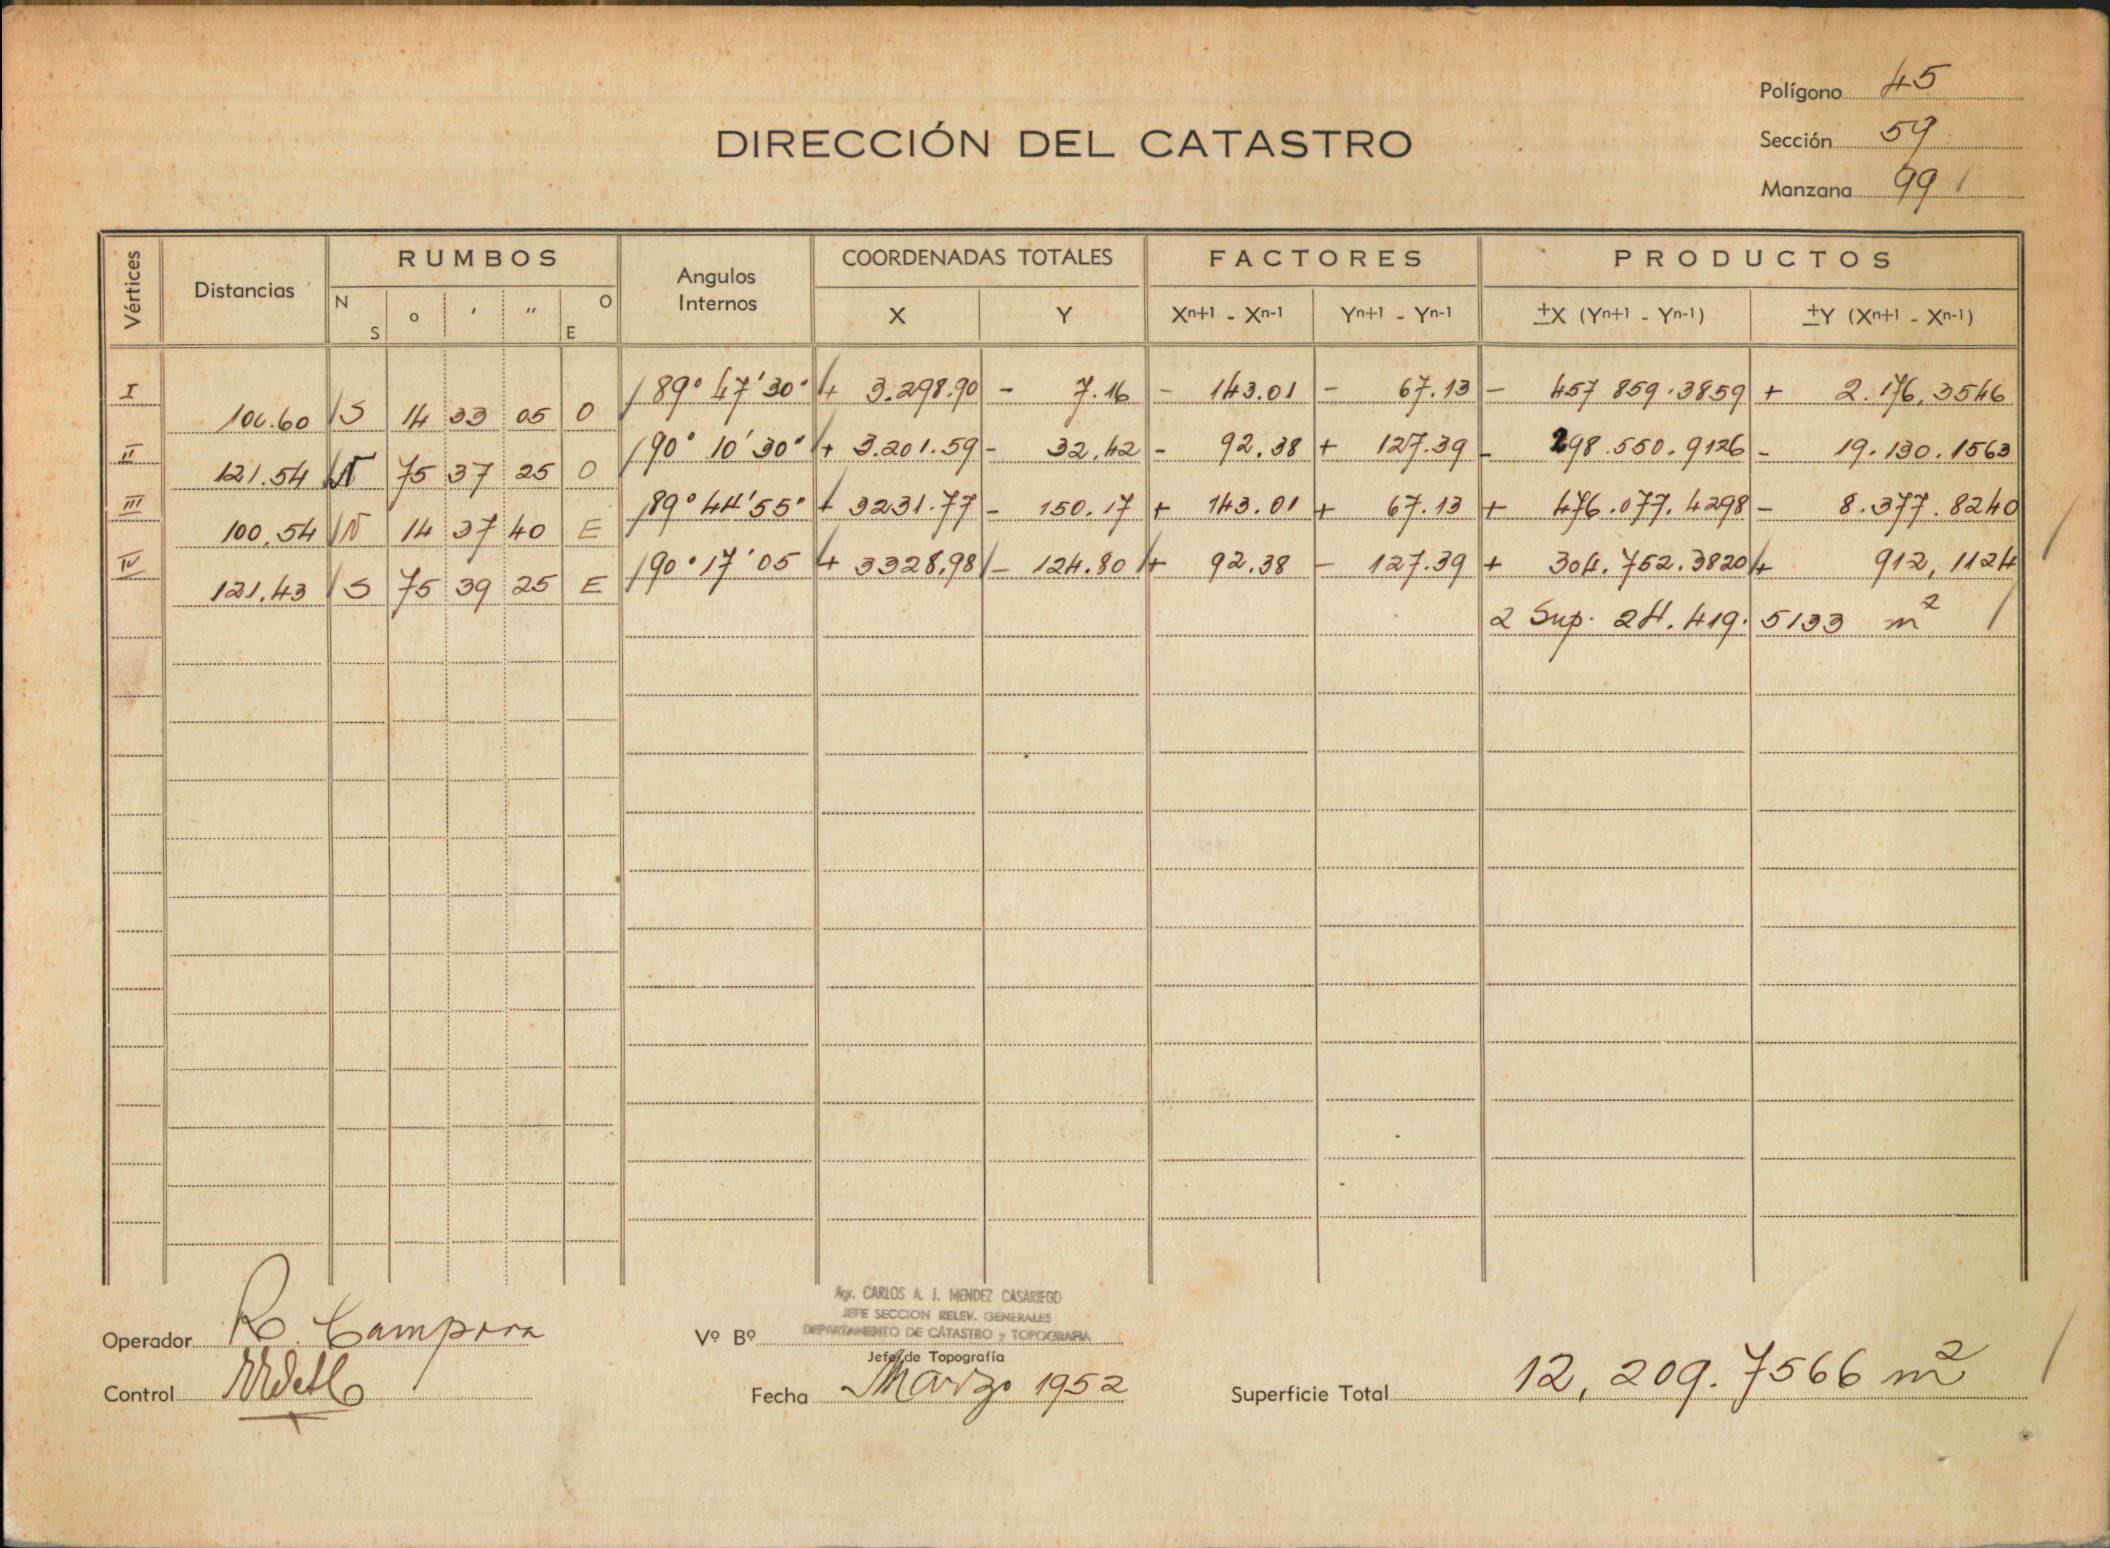 Polígono 45
DIRECCIÓN DEL CATASTRO
Sección 59
Manzana 99
Vértices Distancias RUMBOS Angulos Internos COORDENADAS TOTALES FACTORES PRODUCTOS
N S o ' " O E X Y Xn+1 - Xn-1 Yn+1 - Yn-1 ±X (Yn+1 - Yn-1) ±Y (Xn+1 - Xn-1)
I 89° 47' 30" + 3.298.90 - 7.16 - 143.01 - 67.13 - 457.859.3859 + 2.176,3546
100.60 S 14 33 05 O
II 90° 10' 30" + 3.201.59 - 32,42 - 92.38 + 127.39 - 298.550.9126 - 19.130.1563
121.54 N 75 37 25 O
III 89° 44' 55" + 3231.77 - 150.17 + 143.01 + 67.13 + 476.077.4298 - 8.377.8240
100,54 N 14 37 40 E
IV 90° 17' 05 + 3328,98 - 124.80 + 92.38 - 127.39 + 304.752.3820 + 912,1124
121.43 S 75 39 25 E
2 Sup. 24.419.5133 m²
Agr. CARLOS A. J. MENDEZ CASARIEGO
JEFE SECCION RELEV. GENERALES
DEPARTAMENTO DE CATASTRO y TOPOGRAFIA
Operador R. Campora
Vº Bº
Jefe de Topografía
Control
Fecha Marzo 1952
Superficie Total 12,209.7566 m²